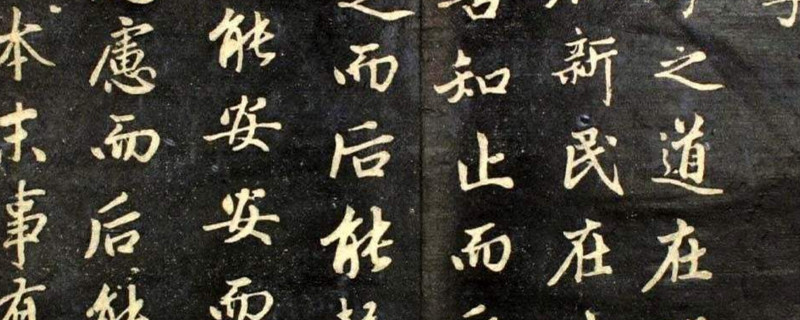 之道在
新民在
知止而
而后能
能安安而
慮而后能
本末事有